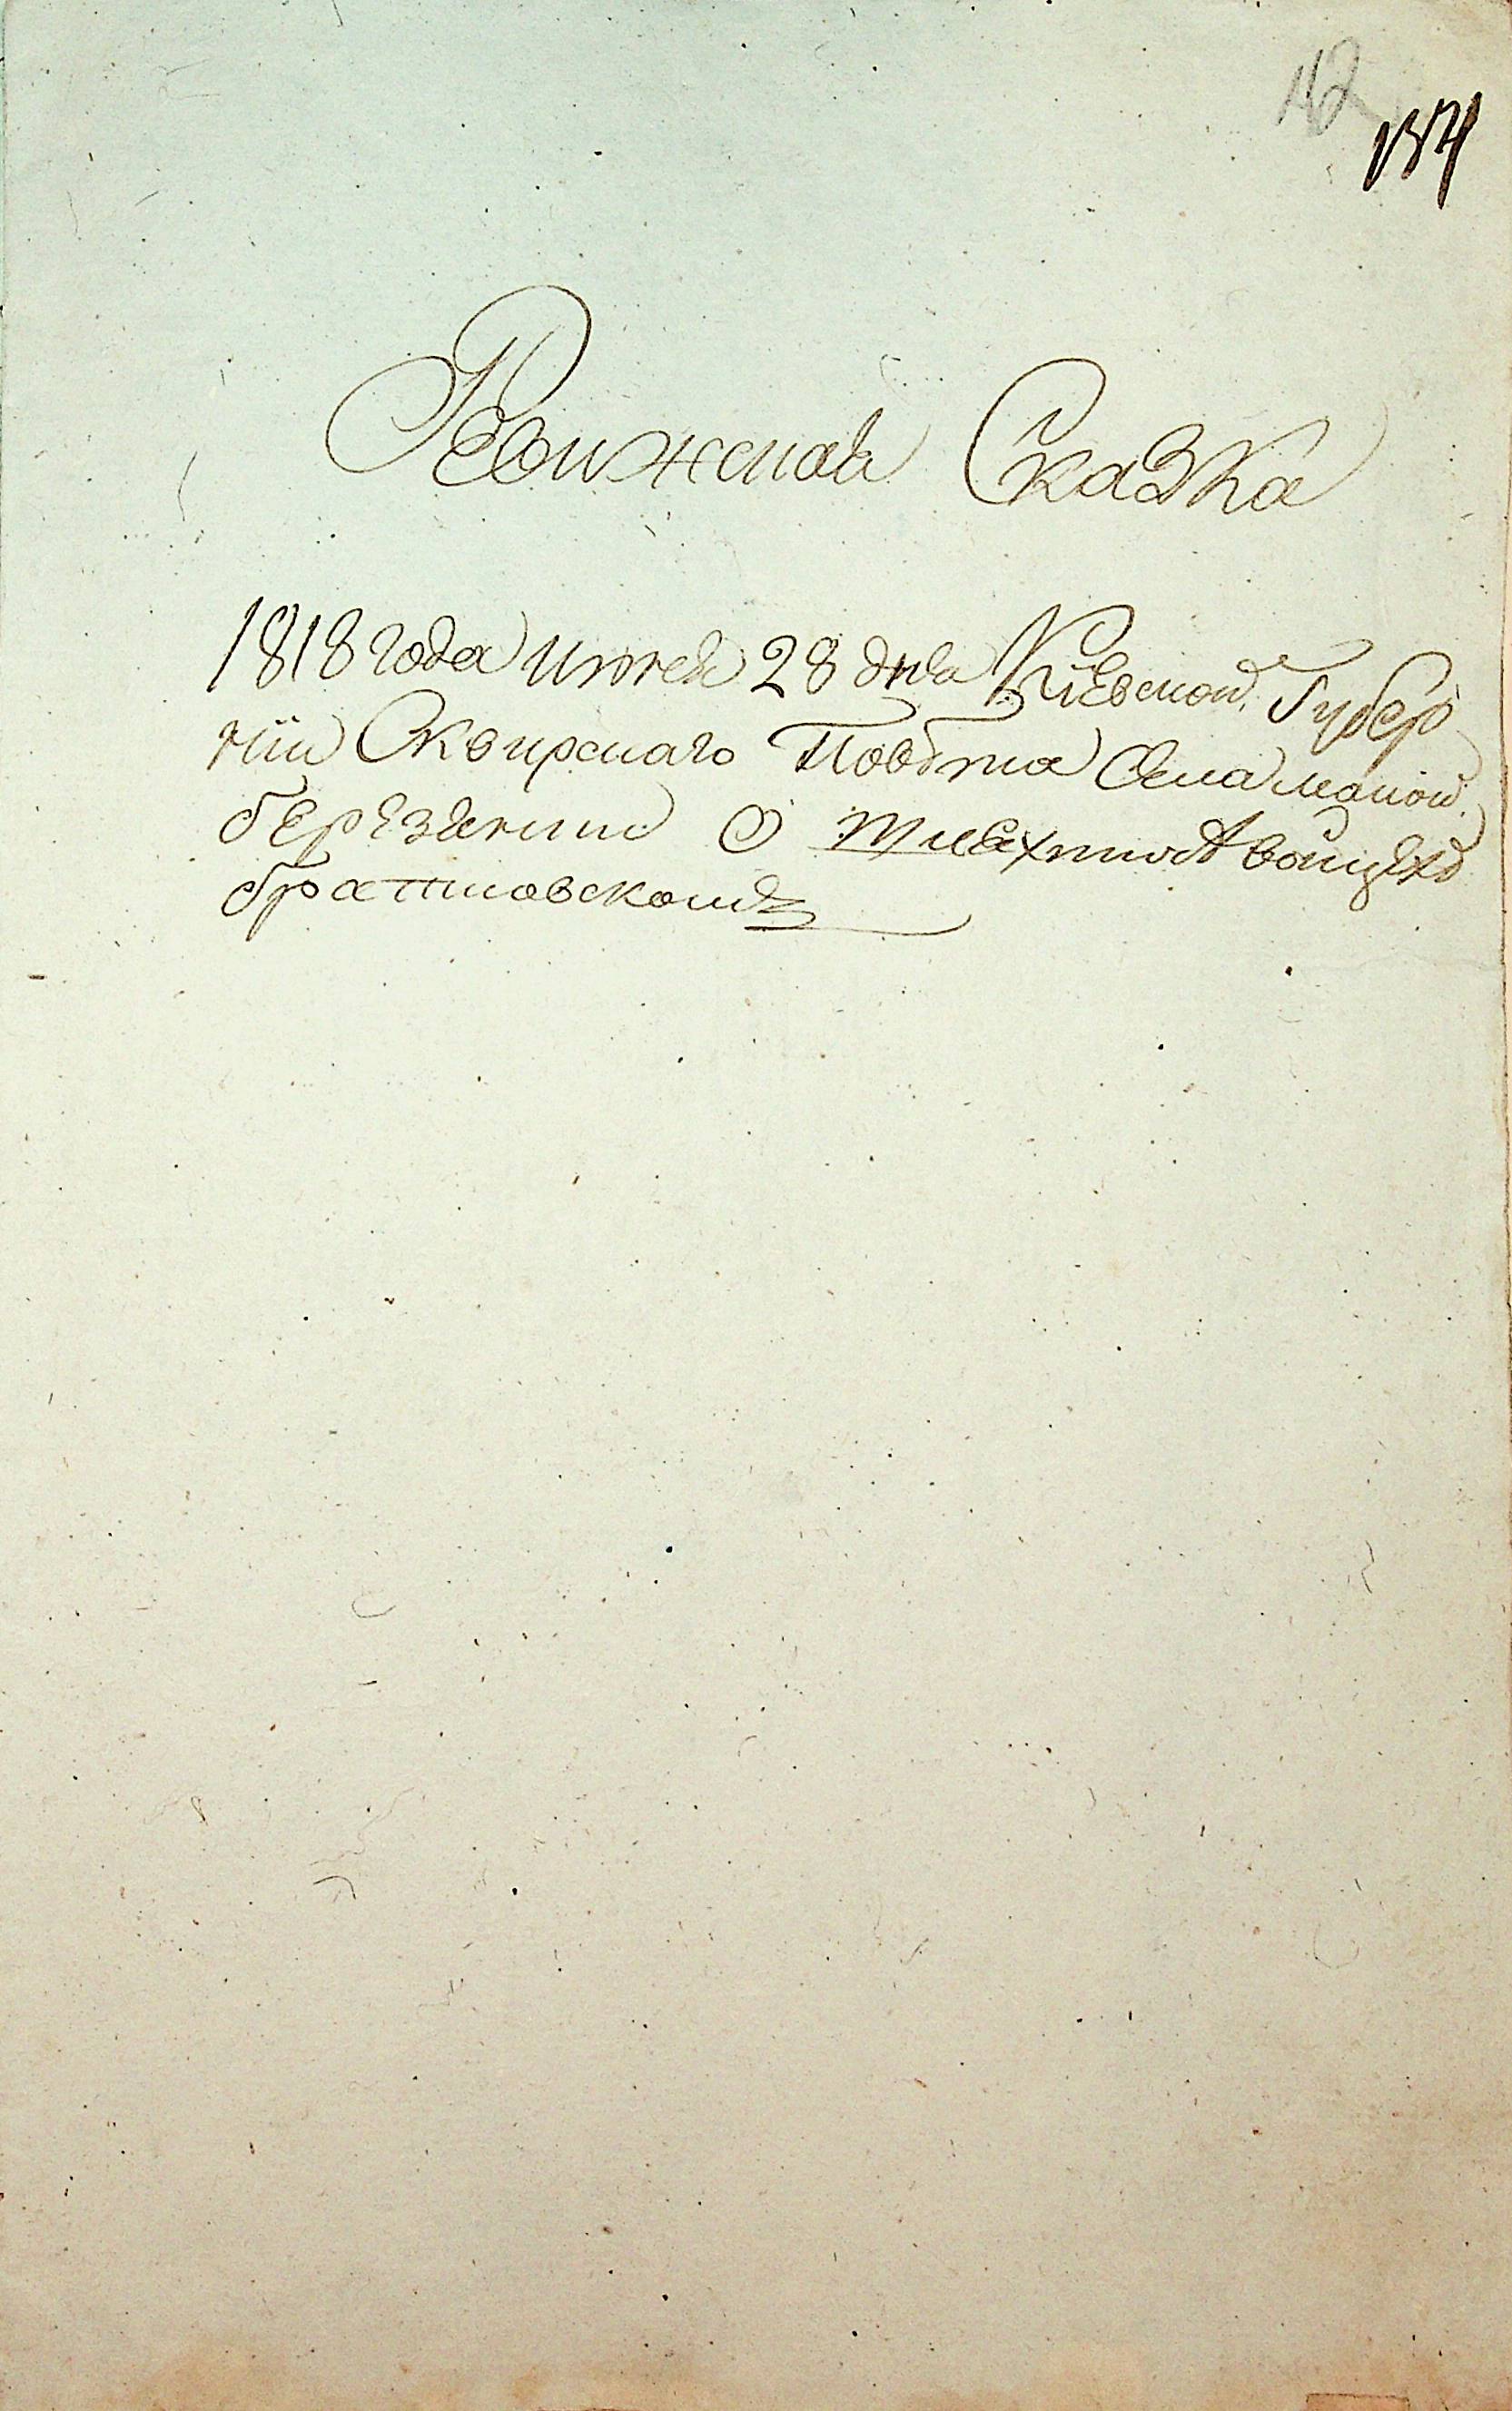 142
154
Ревижская Сказка
1818 года июня 28 дня Кіевской Губер
ніи Сквирскаго Повѣта Села малой
березянки О шляхтичѣ войцехѣ
братковскомъ